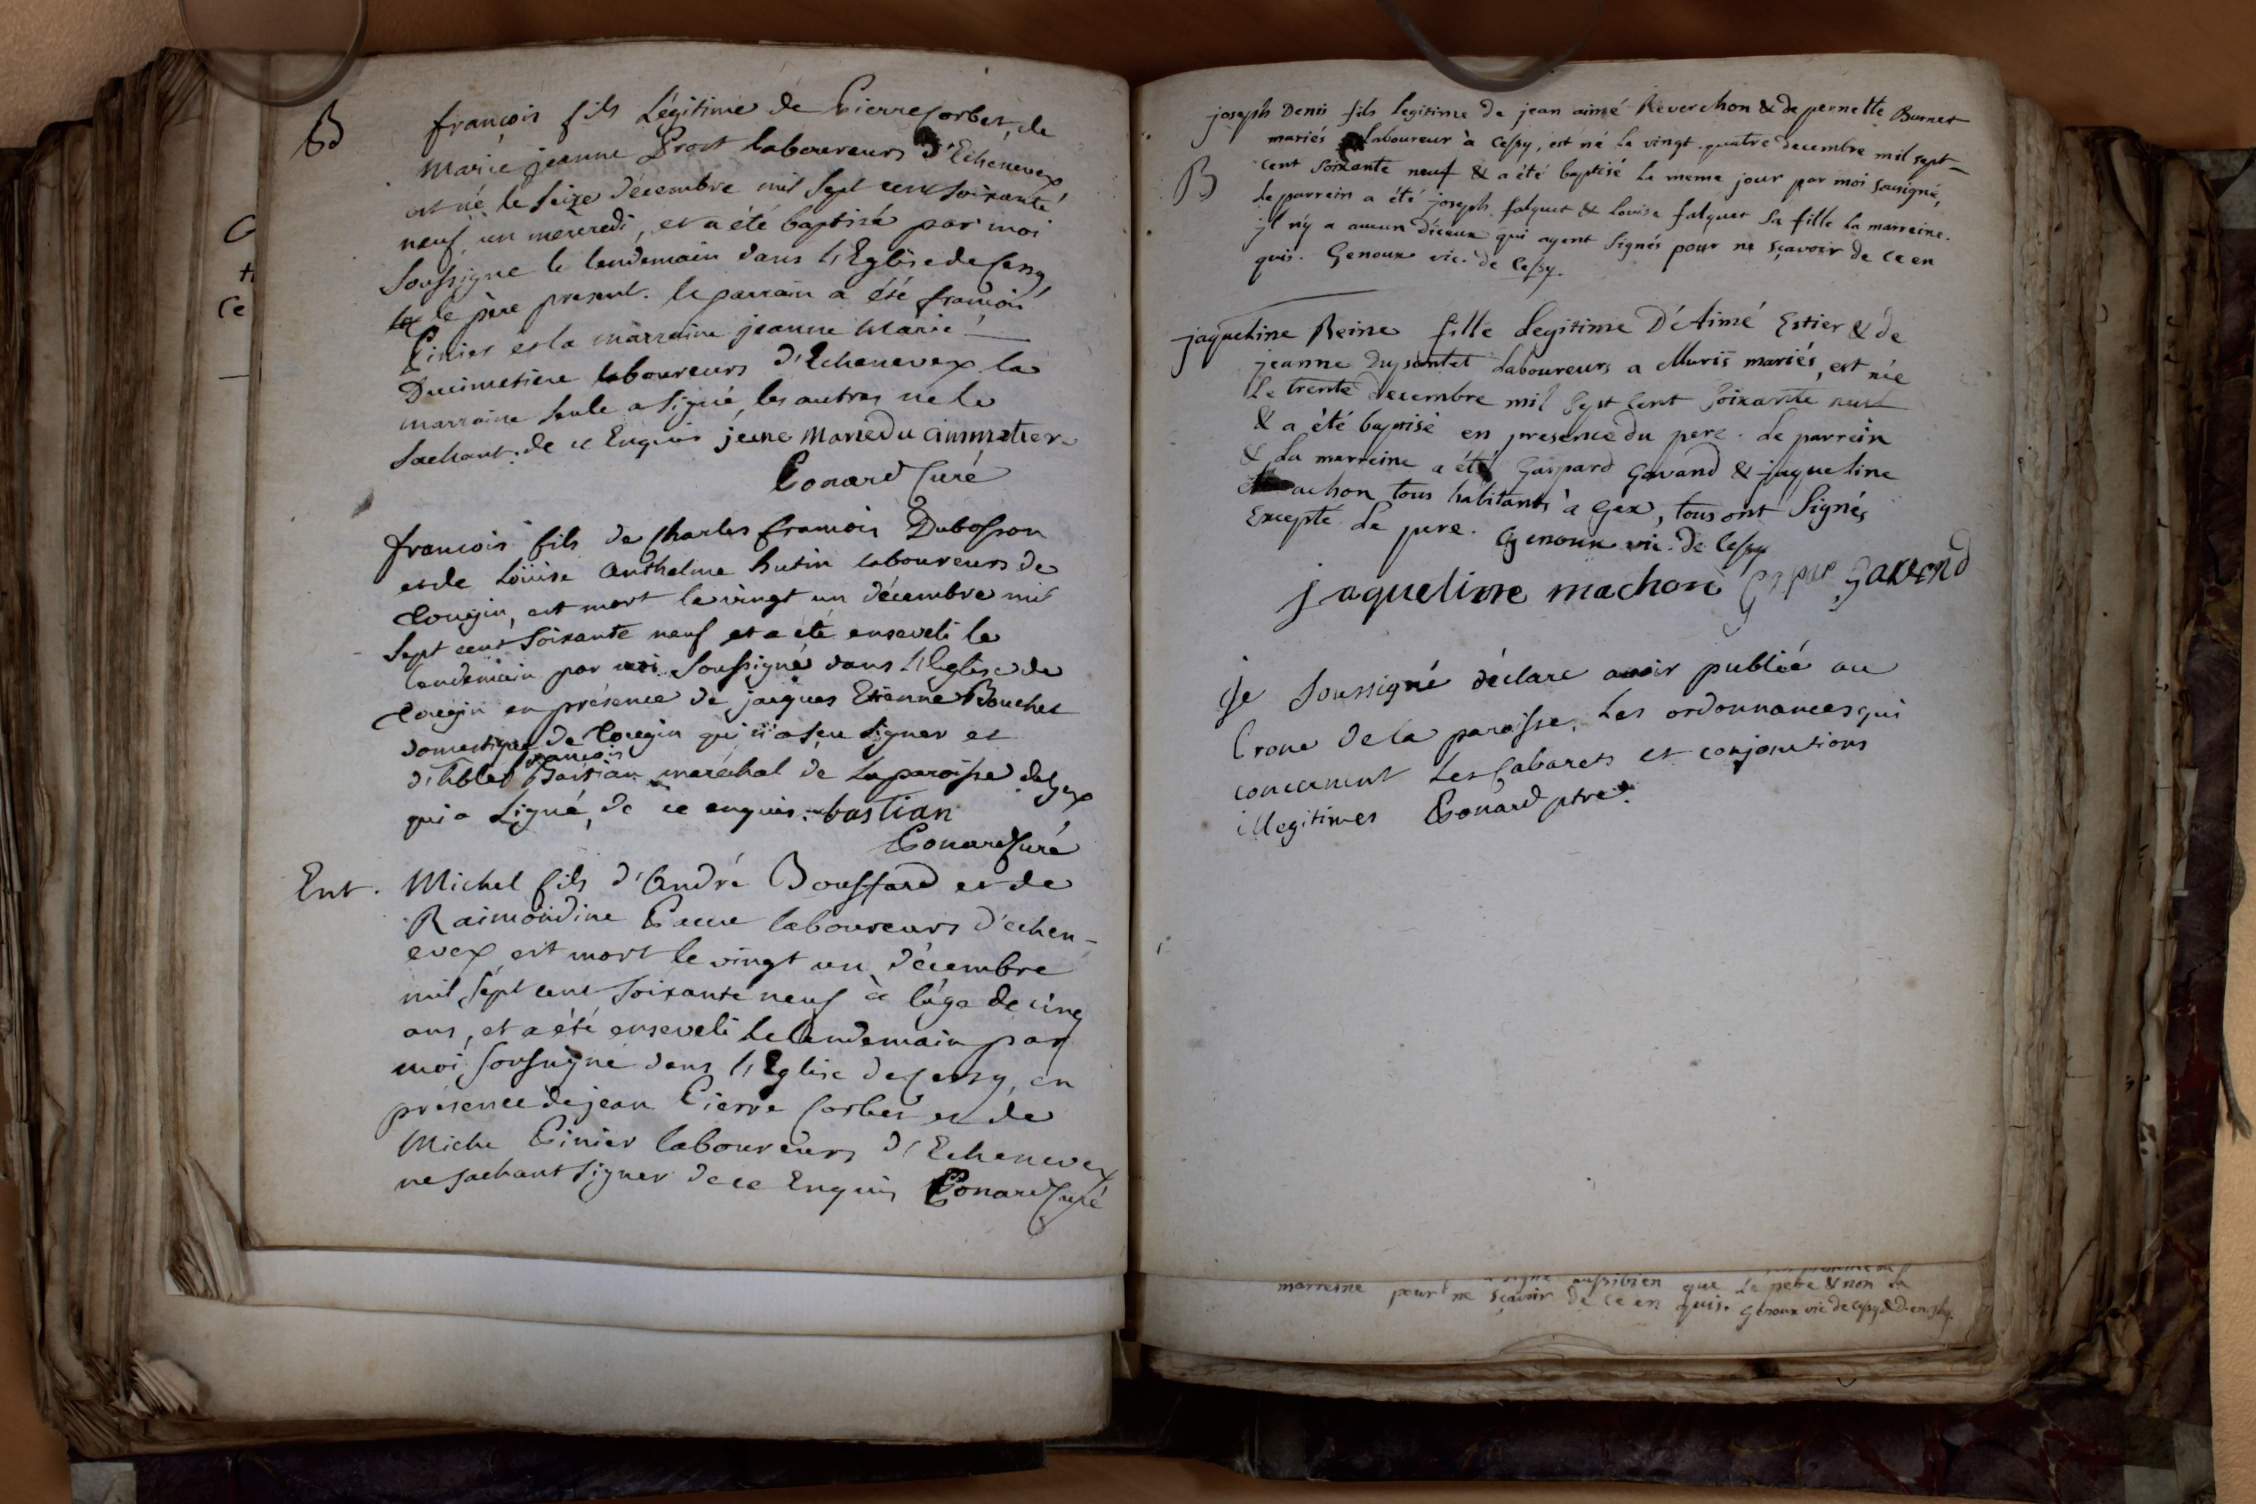 B
françois fils Légitime de Pierre Corbet, de
Marie jeanne Prost laboureurs d'Echenevex
est né le seize décembre mil sept cent soixante
neuf, un mercredi, et a été baptisé par moi
soussigné le lendemain dans l'Eglise de Cessy
le père present. le parrain a été françois
Pinier et la marraine jeanne Marie
Ducimetiere laboureurs d'Echenevex la
marraine seule a signé, les autres ne le
sachant. de ce Enquis jeane Marie du cimmetier
Conard Curé
françois fils de Charles françois Dubosson
et de Loüise Anthelme hutin laboureurs de
Tougin, est mort le vingt un décembre mil
sept cent soixante neuf et a été enseveli le
lendemain par moi soussigné dans l'Eglise de
Tougin en présence de jacques Etienne Bouchet
domestique de Tougin qui a sçu signer et
françois
Bastian maréchal de la paroisse de Gex
qui a signé, de ce enquis. bastian
Conard Curé
Ent. Michel fils d'André Bouffard et de
Raimondine laboureurs d'echen-
evex est mort le vingt un décembre
mil sept cent soixante neuf à l'âge de cinq
ans, et a été enseveli le lendemain par
moi soussigné dans l'Eglise de Cessy, en
présence de jean Pierre Corbet et de
Miche Pinier laboureurs d'Echenevex
ne sachant signer de ce Enquis Conard Curé
joseph Denis fils legitime de jean aimé Reverchon & de pernette Burnet
mariés laboureur à Cessy, est né le vingt-quatre decembre mil sept-
B
cent soixante neuf & a été baptisé le meme jour par moi sousigné,
le parrein a été joseph falquet & Louise falquet sa fille la marreine.
jl n'y a aucun d'iceux qui ayent signés pour ne sçavoir de ce en
quis. Genoux vic. de Cessy.
jaqueline Reine fille legitime D'Aimé Estier & de
jeanne Dusontet Laboureurs a Muris mariés, est née
le trente decembre mil sept cent soixante neuf
& a été baptisé en presence du pere. Le parrein
& La marreine a été Gaspard Gavand & jaqueline
Machon tous habitants à Gex, tous ont signés
Excepté le pere. Genoux vic. de Cessy
jaqueline machon Gavend
je soussigné déclare avoir publiée au
Prone de la paroisse, Les ordonnances qui
concernent Les Cabarets et conjonctions
illegitimes Conard ptre.
aussibien que le pere & non la
marreine pour ne sçavoir de ce en quis. Genoux vic de Cessy